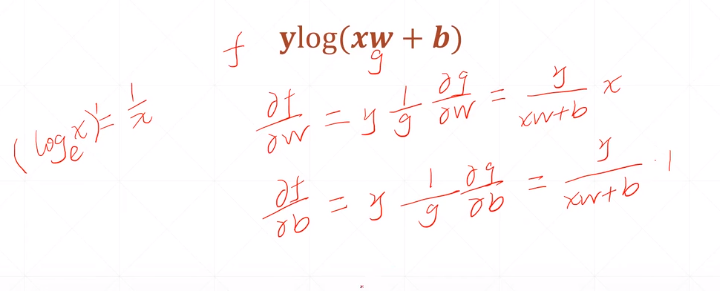 f ylog(xw + b)
g
(logₑx)' = 1/x
∂f/∂w = y 1/g ∂g/∂w = y/(xw+b) x
∂f/∂b = y 1/g ∂g/∂b = y/(xw+b) · 1